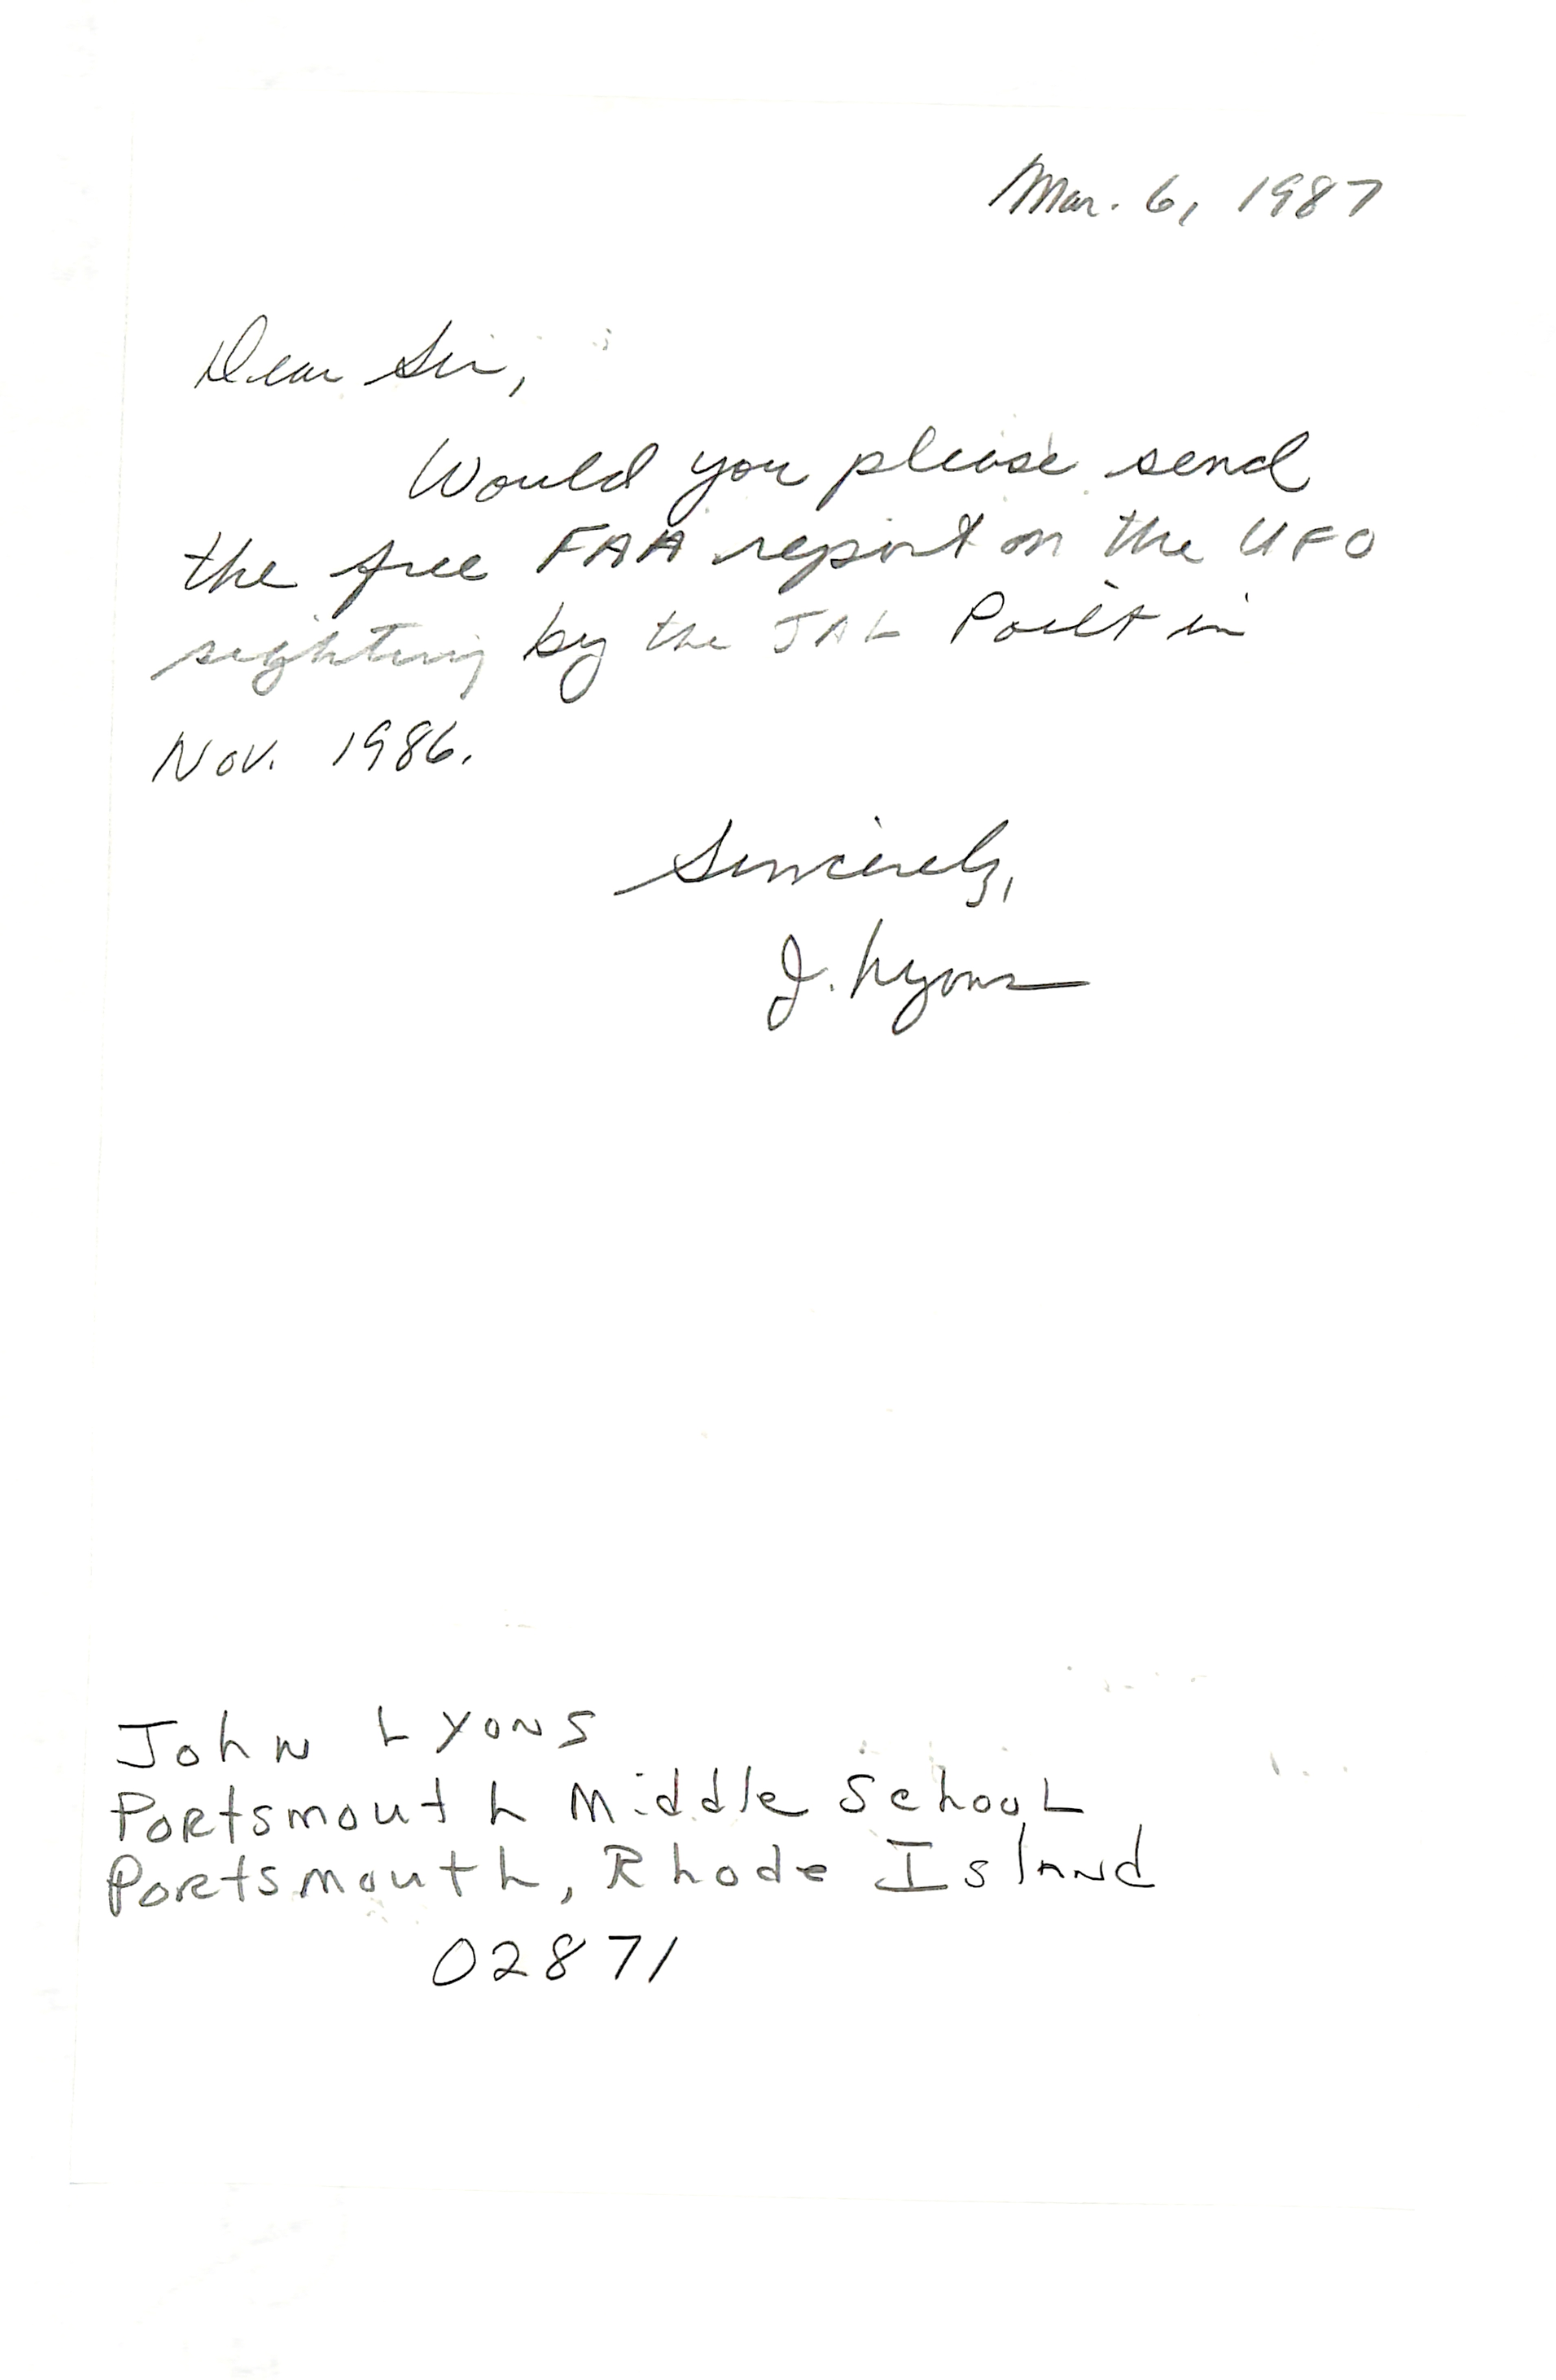 Mar. 6, 1987
Dear Sir,
Would you please send
the free FAA report on the UFO
sighting by the JAL Poilt in
Nov. 1986.
Sincerely,
J. Lyons
John Lyons
Portsmouth Middle School
Portsmouth, Rhode Island
02871